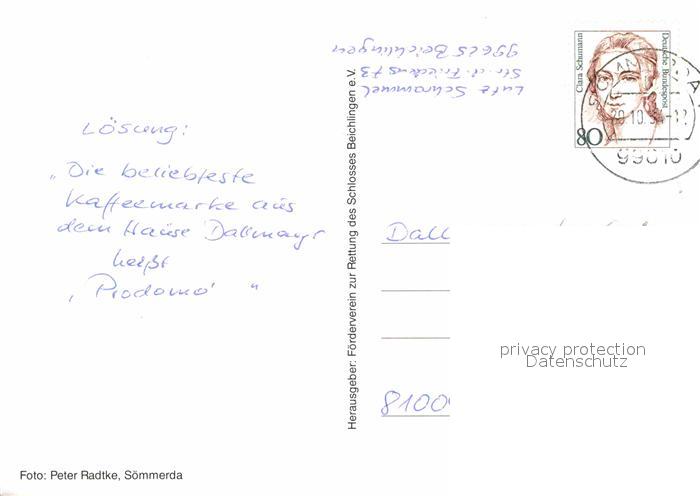 Lösung:
„Die beliebteste
Kaffeemarke aus
dem Hause Dallmayr
heißt
‚Prodomo' "
Foto: Peter Radtke, Sömmerda
Herausgeber: Förderverein zur Rettung des Schlosses Beichlingen e.V.
Lutz Schrammel
Str. d. Friedens 73
99625 Beichlingen
Clara Schumann
Deutsche Bundespost
80
99610
Dall
8100
privacy protection
Datenschutz